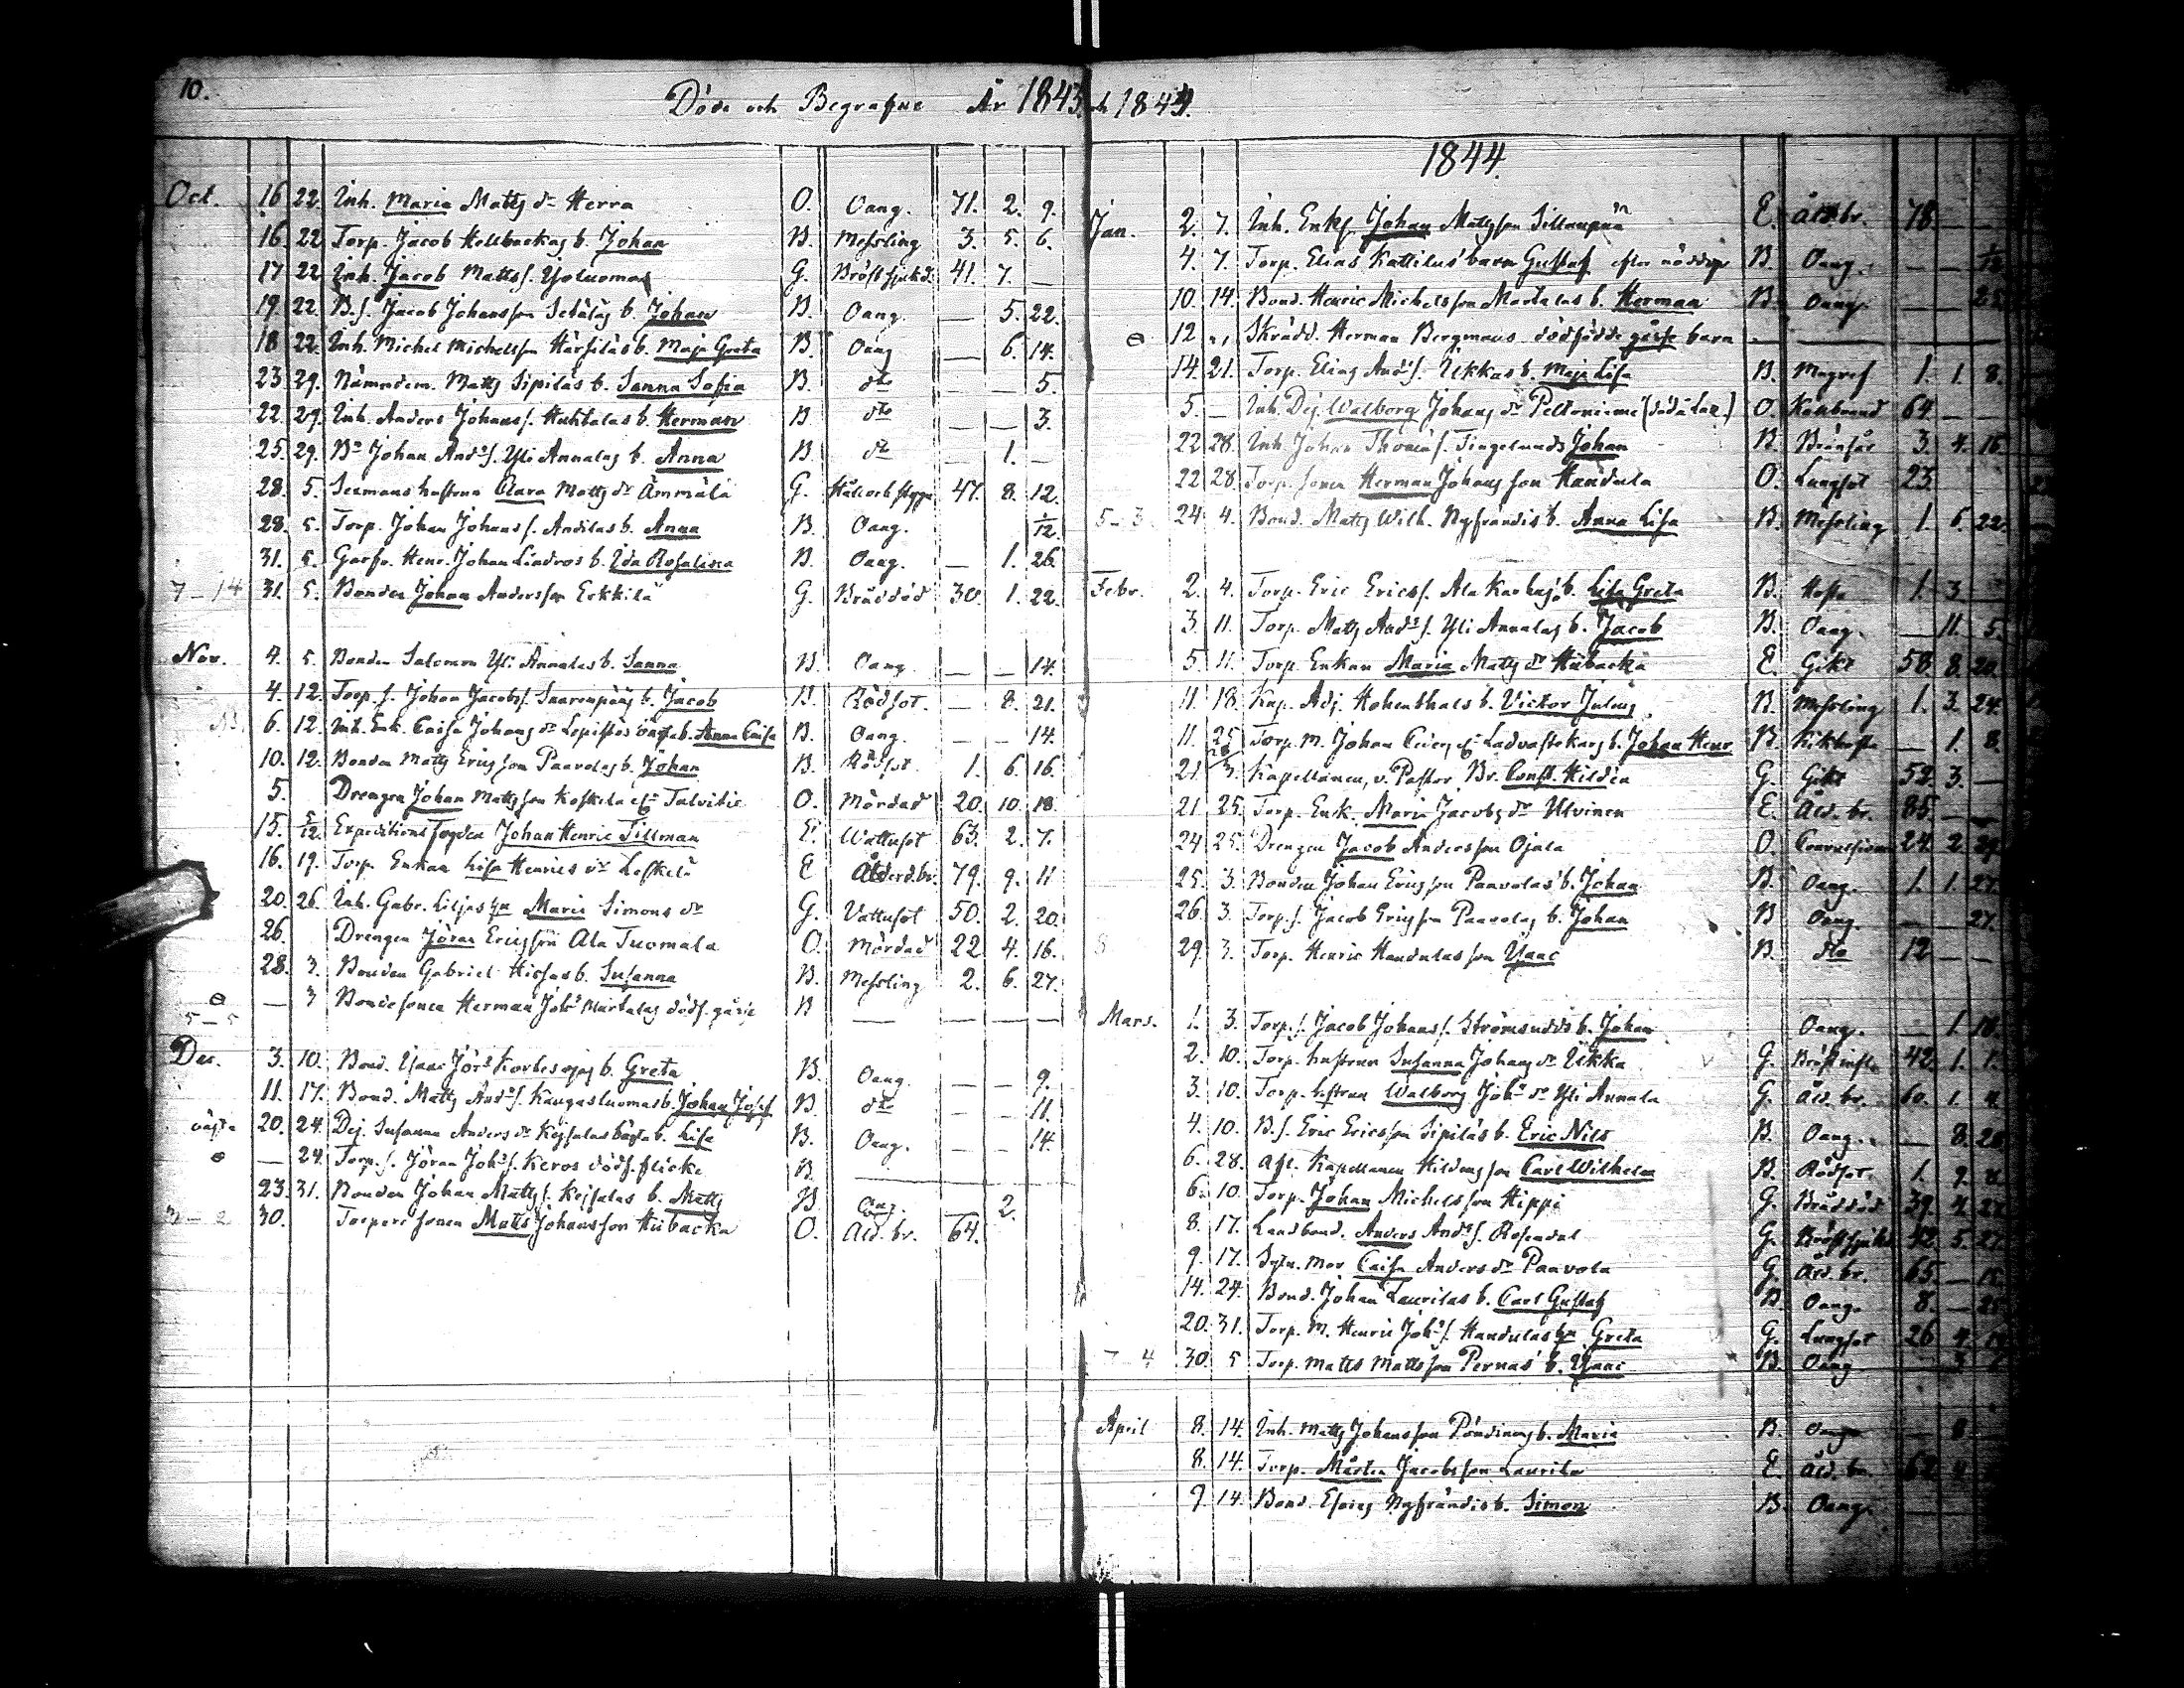 10.
Döde och Begrafne År 1843. och 1844.
Oct. 16 22. Inh. Maria Matts dr Herra O. Oang. 71. 2. 9.
16. 22 Torp. Jacob Hollbackas b. Johan B. Messling 3. 5. 6.
17 22 Inh. Jacob Matts s. Yoluoma G. Bröstsjukd. 41. 7. —
19. 22. B.s. Jacob Johansson Setäläs b. Johan B. Oang. — 5. 22.
18 22. Inh. Michel Michelsson Härsiläs b. Maja Greta B. Oang — 6. 14.
23 29. Nämndem. Matts Sipiläs b. Sanna Sofia B. dto — — 5.
22. 29. Inh. Anders Johans s. Huhtalas b. Herman B dto — — 3.
25. 29. Bn Johan And:s. Yli Annalas b. Anna B. dto — 1. —
28. 5. Sexmans hustrun Clara Matts dr Ämmälä G. Håll och stygn 47. 8. 12.
28. 5. Torp. Johan Johans s. Anttilas b. Anna B. Oang. 1/12.
31. 5. Garfv. Henr. Johan Lindros b. Ida Rosalina B. Oang. — 1. 26.
7-14 31. 5. Bonden Johan Andersson Erkkilä G. Bråddöd 30. 1. 22.
Nov. 4. 5. Bonden Salomon Yli Annalas b. Sanna B. Oang. — — 14.
4. 12. Torp. s. Johan Jacobs s. Saarenpääs b. Jacob B. Rödsot. — 8. 21.
6. 12. Inh. Enk. Caisa Johans dr Lepistös oägta b. Anna Caisa B. Oang. — — 14.
10. 12. Bonden Matts Ericsson Paavolas b. Johan B. Rödsot. 1. 6. 16.
5. Drengen Johan Mattsson Koskela Talvitie O. Mördad 20. 10. 18.
15. 5/12. Expeditions Fogden Johan Henric Tillman E. Wattusot 63. 2. 7.
16. 19. Torp. Enkan Lisa Henrics dr Leskelä E Ålderd.br. 79. 9. 11
20. 26. Inh. Gabr. Liljas hu Maria Simons dr G. Vattusot 50. 2. 20.
26. Drengen Jöran Ericsson Ala Tuomala O. Mördad 22. 4. 16.
28. 3. Bonden Gabriel Hissas b. Susanna B. Messling 2. 6. 27.
— 3 Bondesonen Herman Joh:s Martalas dödf. gåsse B — — — —
5-5
Dec. 3. 10. Bond. Isaac Jör:s Kortesojas b. Greta B. Oang. — — 9.
11. 17. Bond. Matts And:s. Kangasluomas b. Johan Josef B. dto — — 11.
oägta 20. 24. Dej. Susanna Anders dr Kejsalas oägta b. Lisa B. Oang. — 14.
— 24. Torp. s. Jöran Joh:s. Keros dödf. flicka B. —
23. 31. Bonden Johan Matts s. Kejsalas b. Matts B Oang. — 2.
30. Torpare sonen Matts Johansson Hübacka O. Åld. br. 64.
1844.
Jan. 2. 7. Inh. Enkl. Johan Mattsson Sillanpää E. Åld.br. 78. — —
4. 7. Torp. Elias Kattilus barn Gustaf efter nöddop B. Oang. — — 1/12
10. 14. Bond. Henric Michelsson Martalas b. Herman B. Oang. — — 25.
12 „ Skrädd. Herman Bergmans dödfödde gåsse barn — —
14. 21. Torp. Elias And:s. Ikkas b. Maja Lisa B. Magref 1. 1. 8.
5. — Inh. Dej. Walborg Johans dr Peltoniemi O. Kallbrand 64. — —
22 28. Inh. Johan Thomæ s. Tingelunds Johan B. Brånsår 3. 4. 15.
22 28. Torp. sonen Herman Johansson Handula O. Lungsot 23.
5-3 24 4. Bond. Matts Wilh. Nyfrändis b. Anna Lisa B. Messling 1. 6. 22.
Febr. 2. 4. Torp. Eric Erics s. Ala Karhus b. Lisa Greta B. Hosta 1. 3 —
3. 11. Torp. Matts And:s. Yli Annalas b. Jacob B. Oang. — 11. 5.
5. 11. Torp. Enkan Maria Matts dr Hübacka E. Gikt 58. 8. 20.
11. 18. Kap. Adj. Hohenthals b. Victor Julius B. Messling 1. 3. 24.
11. 25 Torp. M. Johan Ladvastekars b. Johan Henr B. Kikhosta — 1. 8.
21 3. Kapellanen, v. Pastor Br. Const. Hildén G. Gikt 52. 3. —
21 25. Torp. Enk. Maria Jacobs dr Ulvinen E. Åld. br. 85. — —
24 25. Drengen Jacob Andersson Ojala O. Convulsioner 24. 2. 29.
25. 3. Bonden Johan Ericsson Paavolas b. Johan B. Oang. 1. 1. 27.
26. 3. Torp. s. Jacob Ericsson Paavolas b. Johan B Oang. — — 27.
29. 3. Torp. Henric Handulas son Isaac B dto 12 — —
Mars. 1. 3. Torp. s. Jacob Johans s. Strömsunds b. Johan Oang. — 1. 18.
2. 10. Torp. hustrun Susanna Johans dr Ikka G. Bröst infl. 42. 1. 1.
3. 10. Torp. hustrun Walborg Joh:s dr Yli Annala G. Åld. br. 60. 1. 4.
4. 10. B.s. Eric Ericsson Sipiläs b. Eric Nils B. Oang. — 8. 26.
6. 28. Afl. Kapellanen Hildens son Carl Wilhelm B. Rödsot. 1. 9. 8.
6. 10. Torp. Johan Michelsson Hippi G. Bråddöd 39.
8. 17. Landbond. Anders And:s. Rosendal G. Bröstsjukd. 42. 5. 21.
9. 17. Sytn. Mor Caisa Anders dr Paavola G. Åld. br. 65. —
14. 24. Bond. Johan Laurilas b. Carl Gustaf B. Oang. 8. —
20. 31. Torp. M. Henric Joh:s. Handulas hu Greta G. Lungsot 26 4.
7-4 30. 5 Torp. Matts Mattsson Pernas b. Isaac B. Oang 3
April 8. 14. Inh. Matts Johansson Pöndinens b. Maria B. Oang. — 8
8. 14. Torp. Mårten Jacobsson Laurila E. Åld. br. 62.
9 14. Bond. Esaias Nyfrändis b. Simon B. Oang.